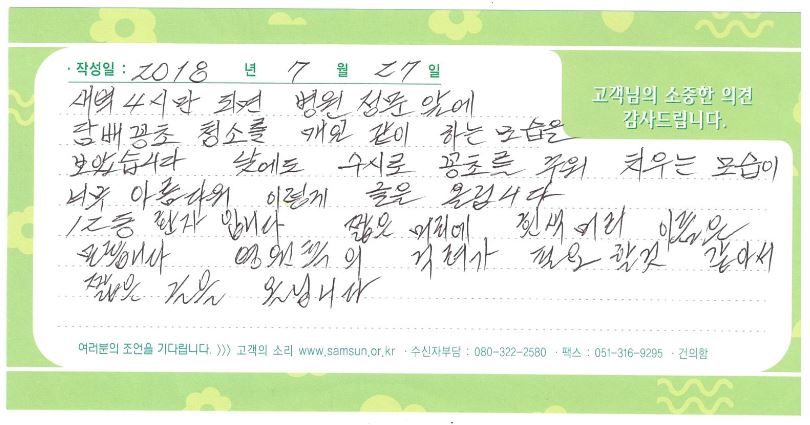 · 작성일 : 2018 년 7 월 27 일
고객님의 소중한 의견
감사드립니다.
새벽 4시만 되면 병원 정문 앞에
담배꽁초 청소를 같이 하는 모습을
보았습니다 낮에도 수시로 꽁초를 주워 치우는 모습이
너무 아름다워 이렇게 글을 올립니다
12층 환자 입니다 짧은 머리에 흰색 머리 이름은
병원측의 격려가 필요 할것 같아서
짧은 글을 올립니다
여러분의 조언을 기다립니다. 〉〉〉 고객의 소리 www.samsun.or.kr · 수신자부담 : 080-322-2580 · 팩스 : 051-316-9295 · 건의함